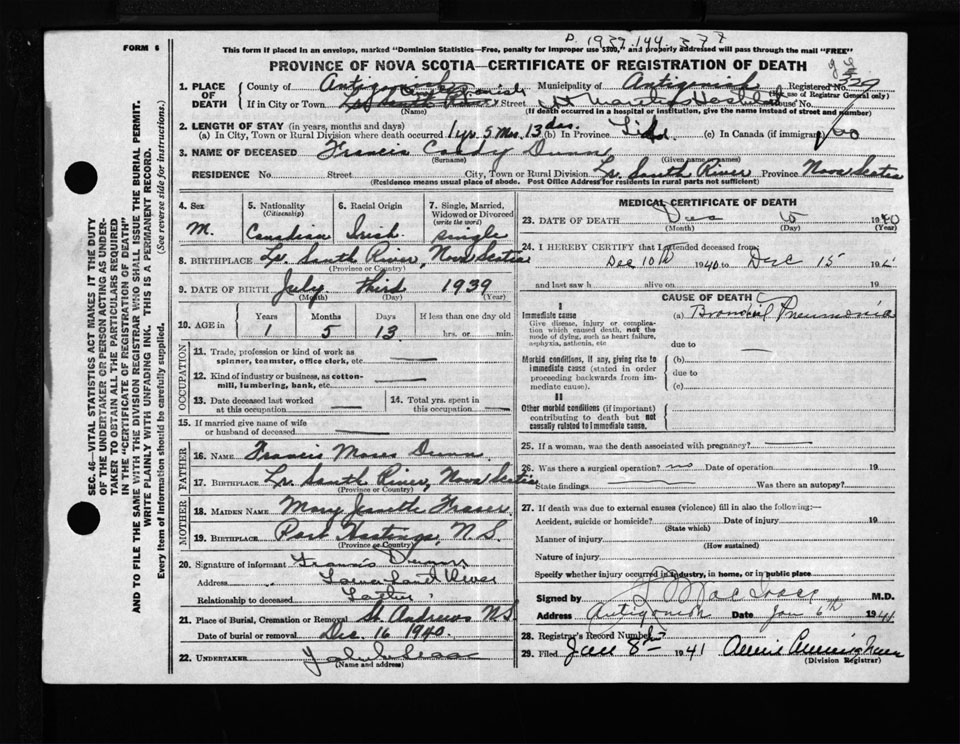 FORM 6
P. 1937.144.377
This form if placed in an envelope, marked "Dominion Statistics—Free, penalty for improper use $300," and properly addressed will pass through the mail "FREE"
PROVINCE OF NOVA SCOTIA—CERTIFICATE OF REGISTRATION OF DEATH
1. PLACE OF DEATH
County of Antigonish Municipality of Antigonish Registered No.
(For use of Registrar General only)
If in City or Town Street House No.
(Name) (If death occurred in a hospital or institution, give the name instead of street and number)
2. LENGTH OF STAY (in years, months and days)
(a) In City, Town or Rural Division where death occurred 1 yr. 5 Mos. 13 das. (b) In Province Life (c) In Canada (if immigrant)
3. NAME OF DECEASED Francis Dunn
(Surname) (Given name or names)
RESIDENCE No. Street City, Town or Rural Division Lr. South River Province Nova Scotia
(Residence means usual place of abode. Post Office Address for residents in rural parts not sufficient)
4. Sex
M.
5. Nationality
(Citizenship)
Canadian
6. Racial Origin
Irish
7. Single, Married, Widowed or Divorced
(write the word)
single
8. BIRTHPLACE Lr. South River, Nova Scotia
(Province or Country)
9. DATE OF BIRTH July third 1939
(Month) (Day) (Year)
10. AGE in
Years Months Days If less than one day old
1 5 13 hrs. or min.
OCCUPATION
11. Trade, profession or kind of work as spinner, teamster, office clerk, etc. —
12. Kind of industry or business, as cotton-mill, lumbering, bank, etc. —
13. Date deceased last worked at this occupation —
14. Total yrs. spent in this occupation —
15. If married give name of wife or husband of deceased —
FATHER
16. NAME Francis Moses Dunn
17. BIRTHPLACE Lr. South River, Nova Scotia
(Province or Country)
MOTHER
18. MAIDEN NAME Mary Jeanette Fraser
19. BIRTHPLACE Port Hastings, N.S.
(Province or Country)
20. Signature of informant Francis Dunn
Address Lower South River
Relationship to deceased Father
21. Place of Burial, Cremation or Removal St. Andrews N.S.
Date of burial or removal Dec. 16 1940.
22. UNDERTAKER
(Name and address)
MEDICAL CERTIFICATE OF DEATH
23. DATE OF DEATH 1940
(Month) (Day) (Year)
24. I HEREBY CERTIFY that I attended deceased from:
Dec 10th 1940 to Dec 15 194
and last saw h alive on 19
CAUSE OF DEATH
I
Immediate cause
Give disease, injury or complication which caused death, not the mode of dying, such as heart failure, asphyxia, asthenia, etc
(a) Bronchial Pneumonia
due to —
Morbid conditions, if any, giving rise to immediate cause (stated in order proceeding backwards from immediate cause).
(b)
due to
(c)
II
Other morbid conditions (if important) contributing to death but not causally related to immediate cause.
25. If a woman, was the death associated with pregnancy? —
26. Was there a surgical operation? no Date of operation 19
State findings — Was there an autopsy?
27. If death was due to external causes (violence) fill in also the following:—
Accident, suicide or homicide? Date of injury 19
(State which)
Manner of injury
(How sustained)
Nature of injury
Specify whether injury occurred in industry, in home, or in public place
Signed by M.D.
Address Antigonish Date Jan 6th 1941
28. Registrar's Record Number
29. Filed Jan 8th 1941
(Division Registrar)
SEC. 46—VITAL STATISTICS ACT MAKES IT THE DUTY
OF THE UNDERTAKER OR PERSON ACTING AS UNDERTAKER
TO OBTAIN ALL THE PARTICULARS REQUIRED
IN THE "CERTIFICATE OF REGISTRATION OF DEATH"
AND TO FILE THE SAME WITH THE DIVISION REGISTRAR WHO SHALL ISSUE THE BURIAL PERMIT.
WRITE PLAINLY WITH UNFADING INK. THIS IS A PERMANENT RECORD.
Every item of Information should be carefully supplied. (See reverse side for instructions.)